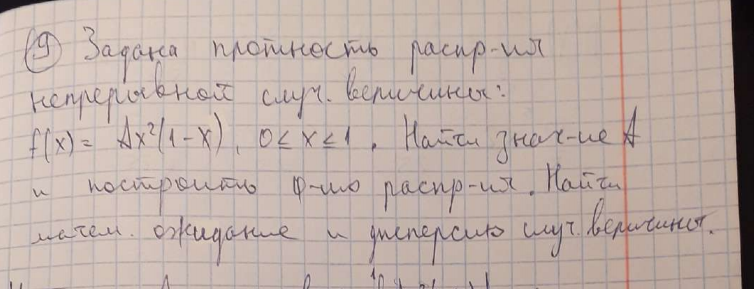 ⑨ Задана плотность распр-ия
непрерывной случ. величины:
f(x) = Ax²(1-x), 0≤x≤1. Найти знач-ие A
и построить ф-ию распр-ия. Найти
матем. ожидание и дисперсию случ. величины.